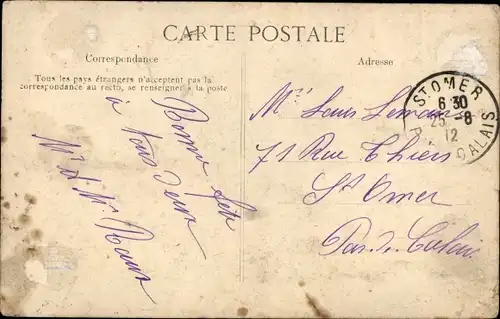 CARTE POSTALE
Correspondance
Tous les pays étrangers n'acceptent pas la
correspondance au recto, se renseigner à la poste
Adresse
Bonne fête
à tous deux
Mr et Mme
Mr Louis
71 Rue Thiers
St Omer
Pas-de-Calais
ST OMER
6 30
25 - 8
12
CALAIS